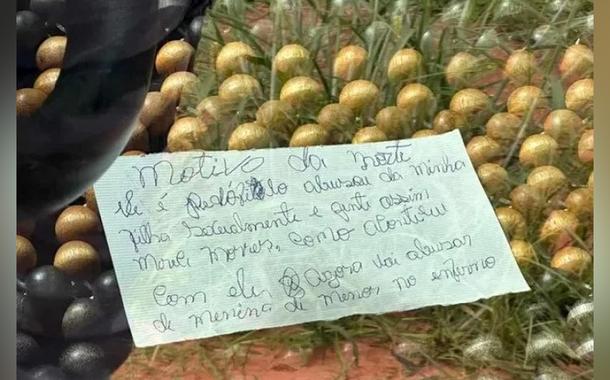 Motivo da morte
ele é pedófilo abusou da minha
filha sexualmente e gente assim
merece morrer, como aconteceu
com ele, Agora vai abusar
de menina de menor no enferno